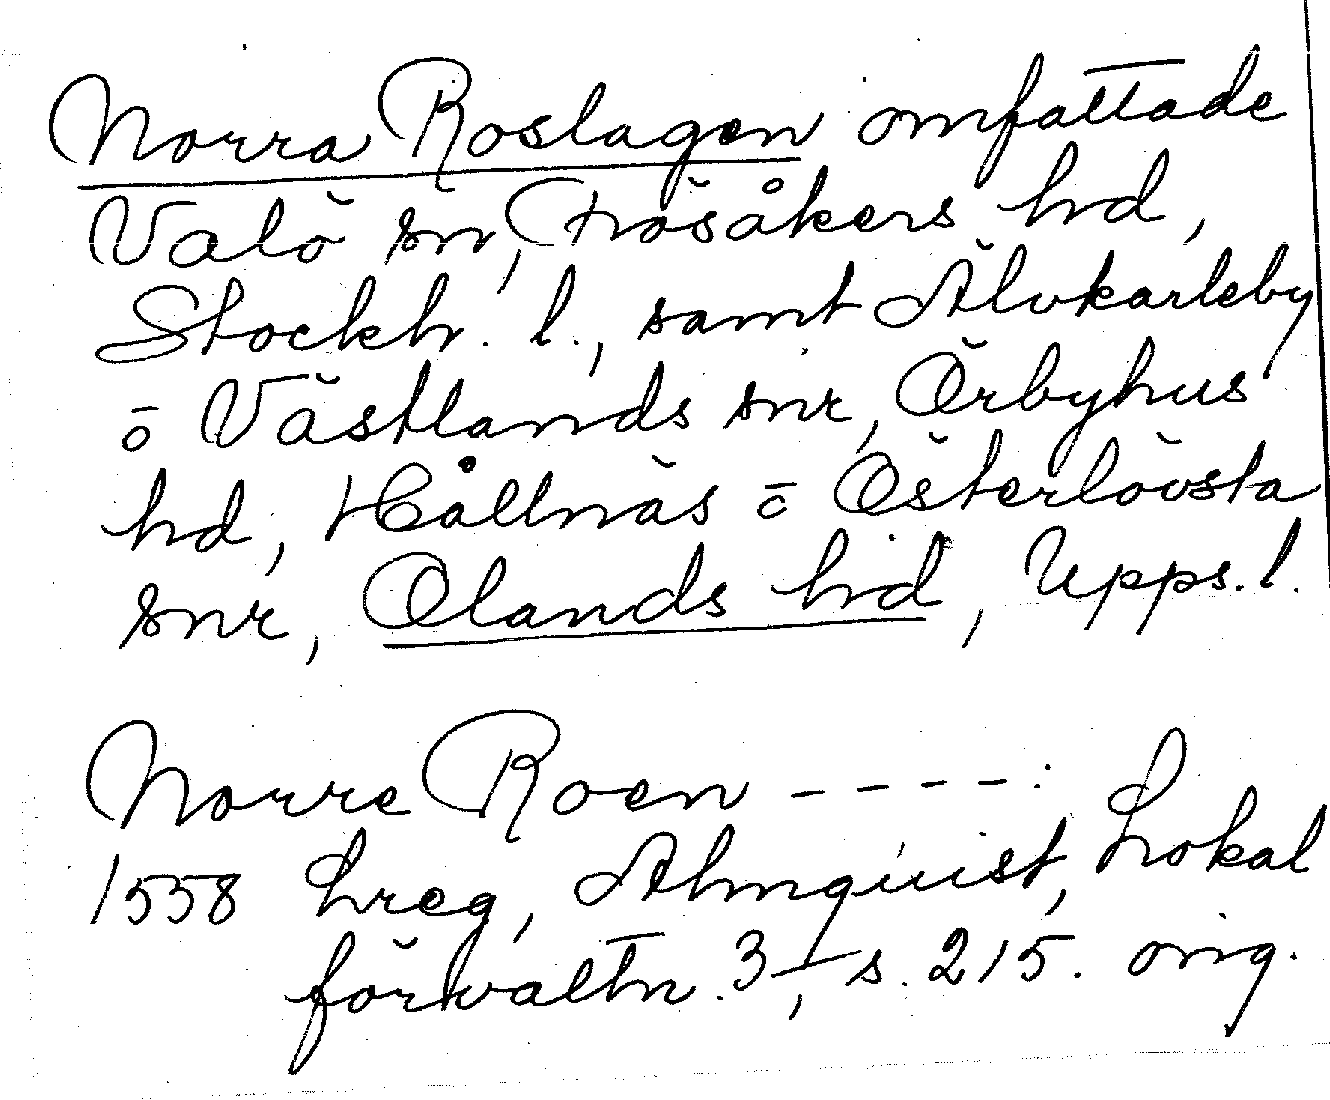 Norra Roslagen omfattade
Valö sn, Frösåkers hd,
Stockh. l., samt Älvkarleby
o Västlands snr, Örbyhus
hd, Hållnäs o Österlövsta
snr, Olands hd, Upps. l.
Norre Roen ----:
1558 Lreg, Almquist, Lokal
förvaltn. 3, s. 215. orig.